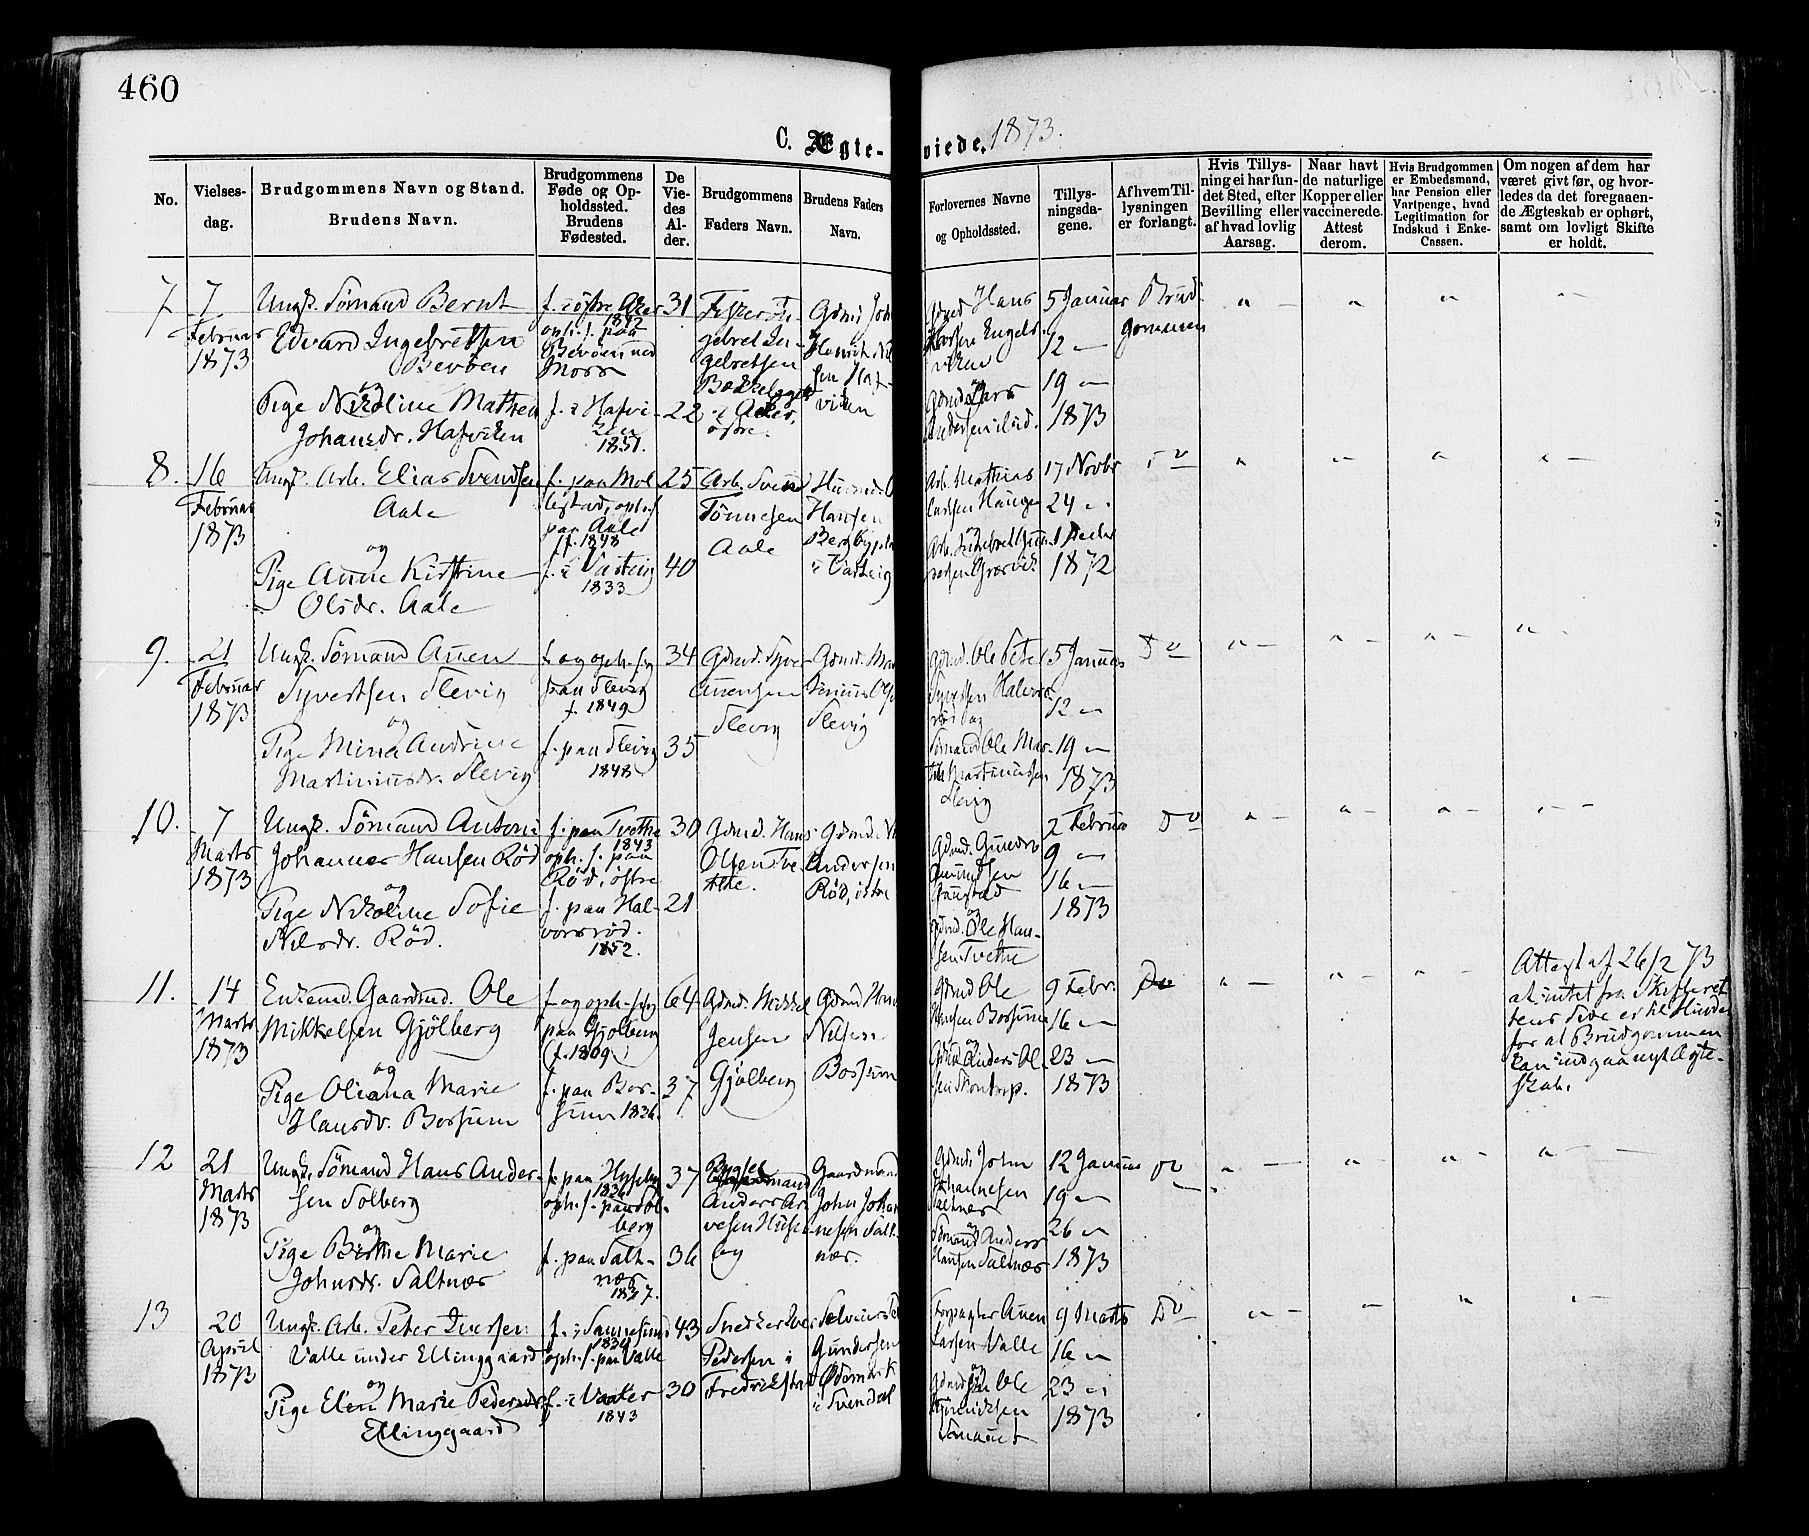 460
C. Ægte-viede. 1873.
No.
Vielses-
dag.
Brudgommens Navn og Stand.
Brudens Navn.
Brudgommens
Føde og Op-
holdssted.
Brudens
Fødested.
De
Vie-
des
Al-
der.
Brudgommens
Faders Navn.
Brudens Faders
Navn.
Forlovernes Navne
og Opholdssted.
Tillys-
ningsda-
gene.
Af hvem Til-
lysningen
er forlangt.
Hvis Tillys-
ning ei har fun-
det Sted, efter
Bevilling eller
af hvad lovlig
Aarsag.
Naar havt
de naturlige
Kopper eller
vaccinerede.
Attest
derom.
Hvis Brudgommen
er Embedsmand,
har Pension eller
Vartpenge, hvad
Legitimation for
Indskud i Enke-
Cassen.
Om nogen af dem har
været givt før, og hvor-
ledes da det foregaaen-
de Ægteskab er ophørt,
samt om lovligt Skifte
er holdt.
7.
7
Februar
1873
Ungk. Sømand Bernt
Edvard Ingebretsen
Bevøen
og
Pige Nikoline Mathea
Johansdr. Hafviken
f. i østre Aker
1842
oph. s. paa
Bevøen ved
Moss
f. i Hafvi-
ken
1851.
31
22
Fisker In-
gebret In-
gebretsen
Bækkelaget
i Aker,
østre.
Gdmd Joh
Henrik Niel
sen Haf-
viken
Gdmd Hans
Larsen Engels-
viken
og
Gdmd Lars
Andersen ibid.
5 Januar
12 "
19 "
1873
Brud-
gommen
" — " " " —
8.
16
Februar
1873
Ungk. Arb. Elias Svendsen
Aale
og
Pige Anne Kirstine
Olsdr. Aale
f. paa Mol
lestad, oph. s.
paa Aale
f. 1848
f. i Varteig
1833
25
40
Arb. Svend
Tønnesen
Aale
Husmd. O
Hansen
Bergbype
i Varteig
Arb. Mathias
Carlsen Haugen
og
Arb. Ingebret Gun-
dersen Græsvik
17 Novbr
24 "
1 Decbr
1872
Do
" " — " — " —
9.
21
Februar
1873
Ungk. Sømand Aven
Syvertsen Slevig
og
Pige Mina Andrine
Martiniusdr. Slevig
f. og oph. sig
paa Slevig
f. 1849
f. paa Slevig
1848
34
35
Gdmd. Syver
Avensen
Slevig
Gdmd. Mar
tinius Ols
Slevig
Gdmd. Ole Peter
Syvertsen Halvors-
rød og
Sømand Ole Mar-
tin Martinussen
Slevig
5 Januar
12 "
19 "
1873
Do
" — " — " — " —
10.
7
Marts
1873
Ungk. Sømand Anton
Johannes Hansen Rød
og
Pige Nikoline Sofie
Nilsdr. Rød.
f. paa Tvethe
1843
oph. s. paa
Rød, østre
f. paa Hal-
vorsrød.
1852.
30
21
Gdmd. Hans
Olsen Tve-
the.
Gdmd. N
Andersen
Rød, østre
Gdmd. Gunder
Amundsen
Gaustad
og
Gdmd. Ole Han-
sen Tvethe
2 Februar
9 "
16 "
1873
Do
" — " — " — " —
11.
14
Marts
1873
Enkemd. Gaardmd. Ole
Mikkelsen Gjølberg
og
Pige Oliana Marie
Hansdr. Borsum
f. og oph. sig
paa Gjølberg
(f. 1809)
f. paa Bor-
sum 1836.
64
37
Gdmd. Mikkel
Jensen
Gjølberg
Gdmd Hans
Nilsen
Borsum
Gdmd Ole
Hansen Borsum
og
Gdmd Anders Ol-
sen Thorup.
9 Febr.
16 "
23 "
1873
Do
" — " — " —
Attest af 26/2 73
at intet fra Skifteret
tens Side er til Hinder
for at Brudgommen
kan indgaa nyt Ægte-
skab.
12
21
Marts
1873
Ungk. Sømand Hans Ander-
sen Solberg
og
Pige Birthe Marie
Johnsdr. Saltnæs
f. paa Huseby
1836
oph. s. paa Sol-
berg
f. paa Salt-
næs
1837.
37
36
Anders Ar-
vesen Huse-
by
Gaardmand
John Johan
nesen Salt-
næs.
Gdmd. John
Johannesen
Saltnæs
og
Sømand Anders
Hansen Saltnæs
12 Januar
19 "
26 "
1873
Do
" — " " — " —
13
20
April
1873
Ungk. Arb. Peter Iversen
Valle under Ellinggaard
og
Pige Elen Marie Pedersdr
Ellinggaard
f. i Sannesund
1830
oph. s. paa Valle
f. i Vaaler
1843
43
30
Snedker Iver
Pedersen i
Fredrikstad
Selveier Pe
Gundersen
Ødemark
i Svendal
Forpagter Aven
Larsen Valle
og
Gdmd Ole
9 Marts
16 "
23 "
1873
Do
" — " — " — " —